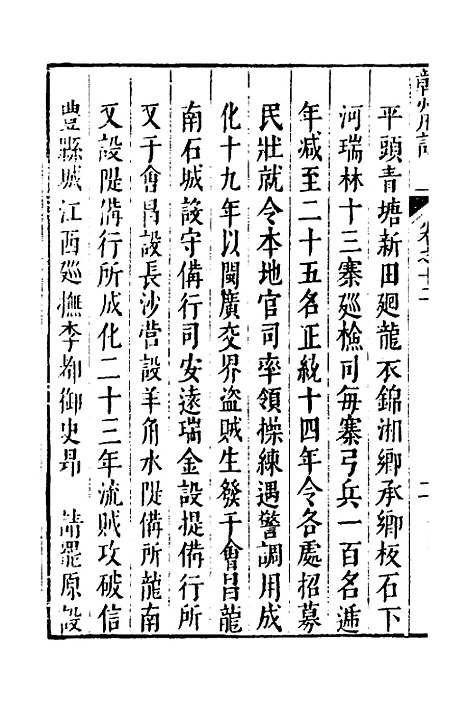 贛州府志
卷之十二
二
平頭青塘新田廻龍衣錦湘鄉承鄉板石下
河瑞林十三寨廵檢司每寨弓兵一百名遞
年減至二十五名正統十四年令各處招募
民壯就令本地官司率領操練遇警調用成
化十九年以閩廣交界盜賊生發于會昌龍
南石城設守備行司安遠瑞金設提備行所
又于會昌設長沙營設羊角水隄備所龍南
又設隄備行所成化二十三年流賊攻破信
豊縣城江西廵撫李都御史昻 請罷原設